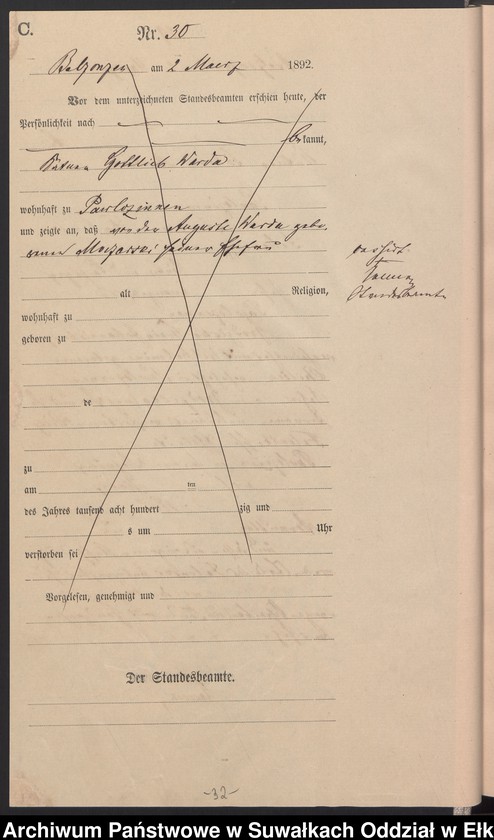 C.
Nr. 30
Belzonzen am 2 Maerz 1892.
Vor dem unterzeichneten Standesbeamten erschien heute, der
Persönlichkeit nach
bekannt,
Gottlieb Warda
wohnhaft zu Pawlozinnen
und zeigte an, daß von der Auguste Warda gebo-
seiner Ehefrau
cassirt
Standesbeamte
alt Religion,
wohnhaft zu
geboren zu
de
zu
am ten
des Jahres tausend acht hundert zig und
s um Uhr
verstorben sei
Vorgelesen, genehmigt und
Der Standesbeamte.
-32-
Archiwum Państwowe w Suwałkach Oddział w Ełk